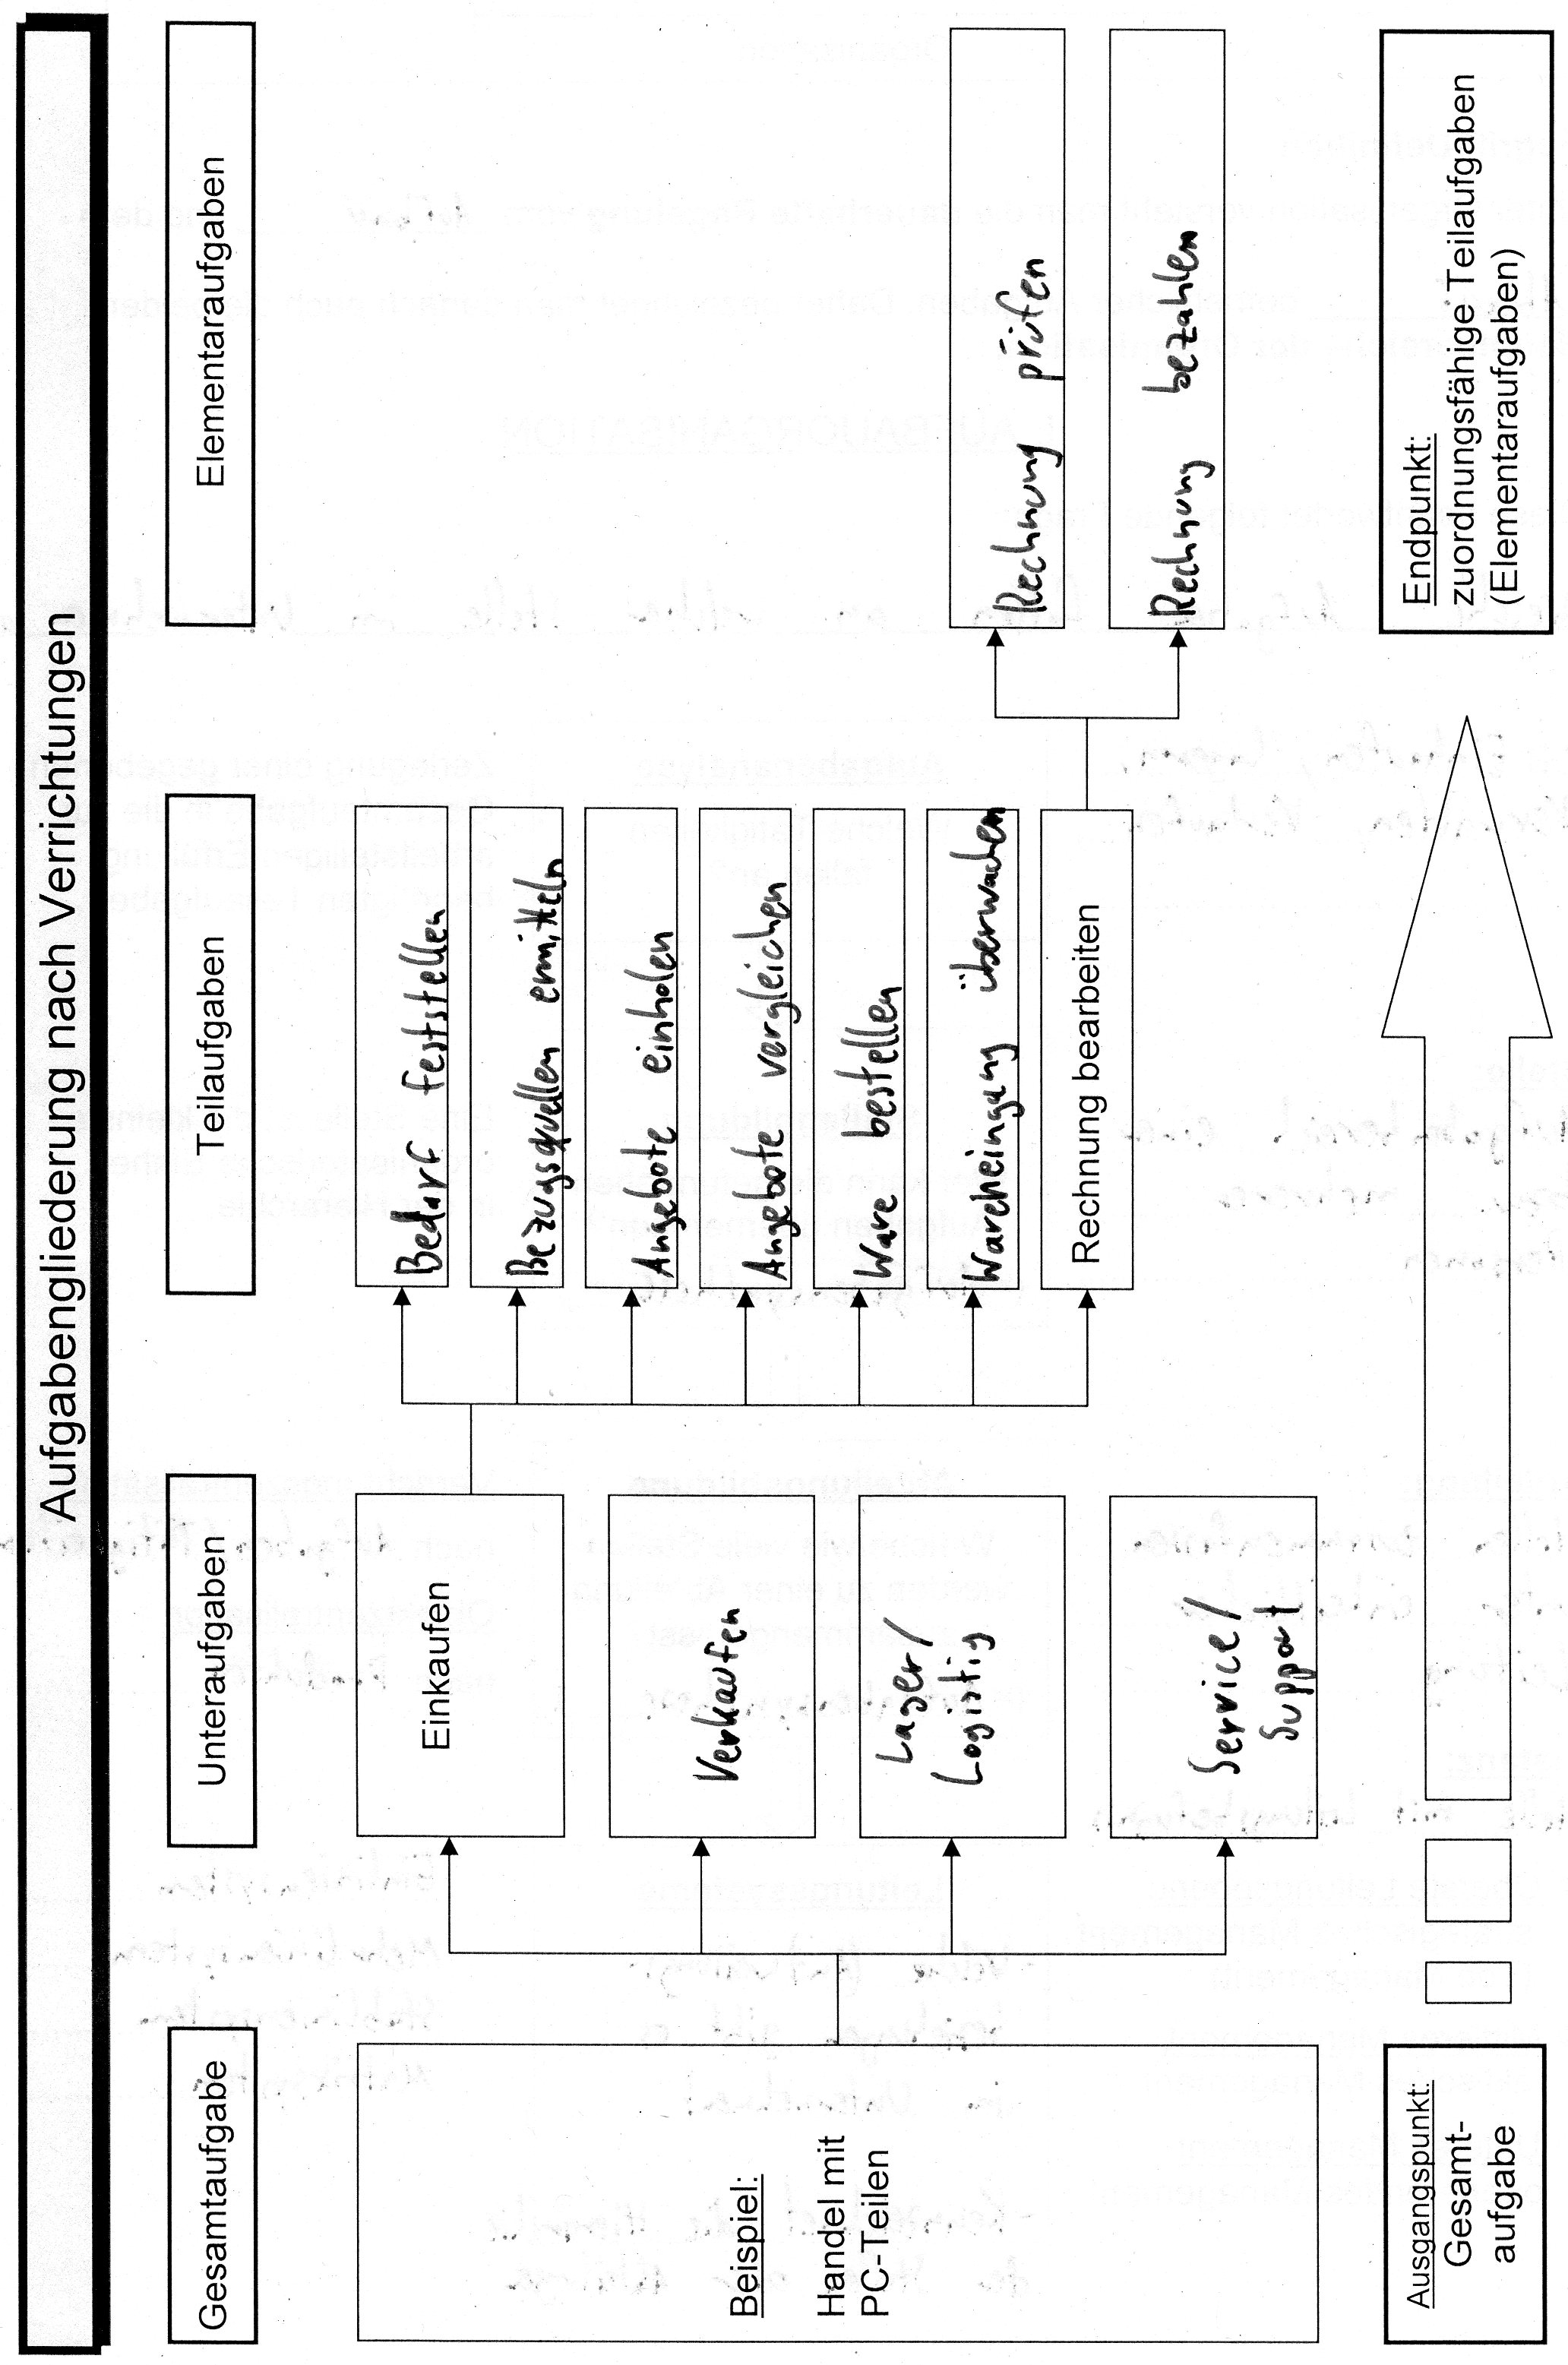 Aufgabengliederung nach Verrichtungen
Gesamtaufgabe
Unteraufgaben
Teilaufgaben
Elementaraufgaben
Beispiel:
Handel mit
PC-Teilen
Einkaufen
Verkaufen
Lager/
Logistig
Service/
Support
Bedarf feststellen
Bezugsquellen ermitteln
Angebote einholen
Angebote vergleichen
Ware bestellen
Wareneingang überwachen
Rechnung bearbeiten
Rechnung prüfen
Rechnung bezahlen
Ausgangspunkt:
Gesamt-
aufgabe
Endpunkt:
zuordnungsfähige Teilaufgaben
(Elementaraufgaben)